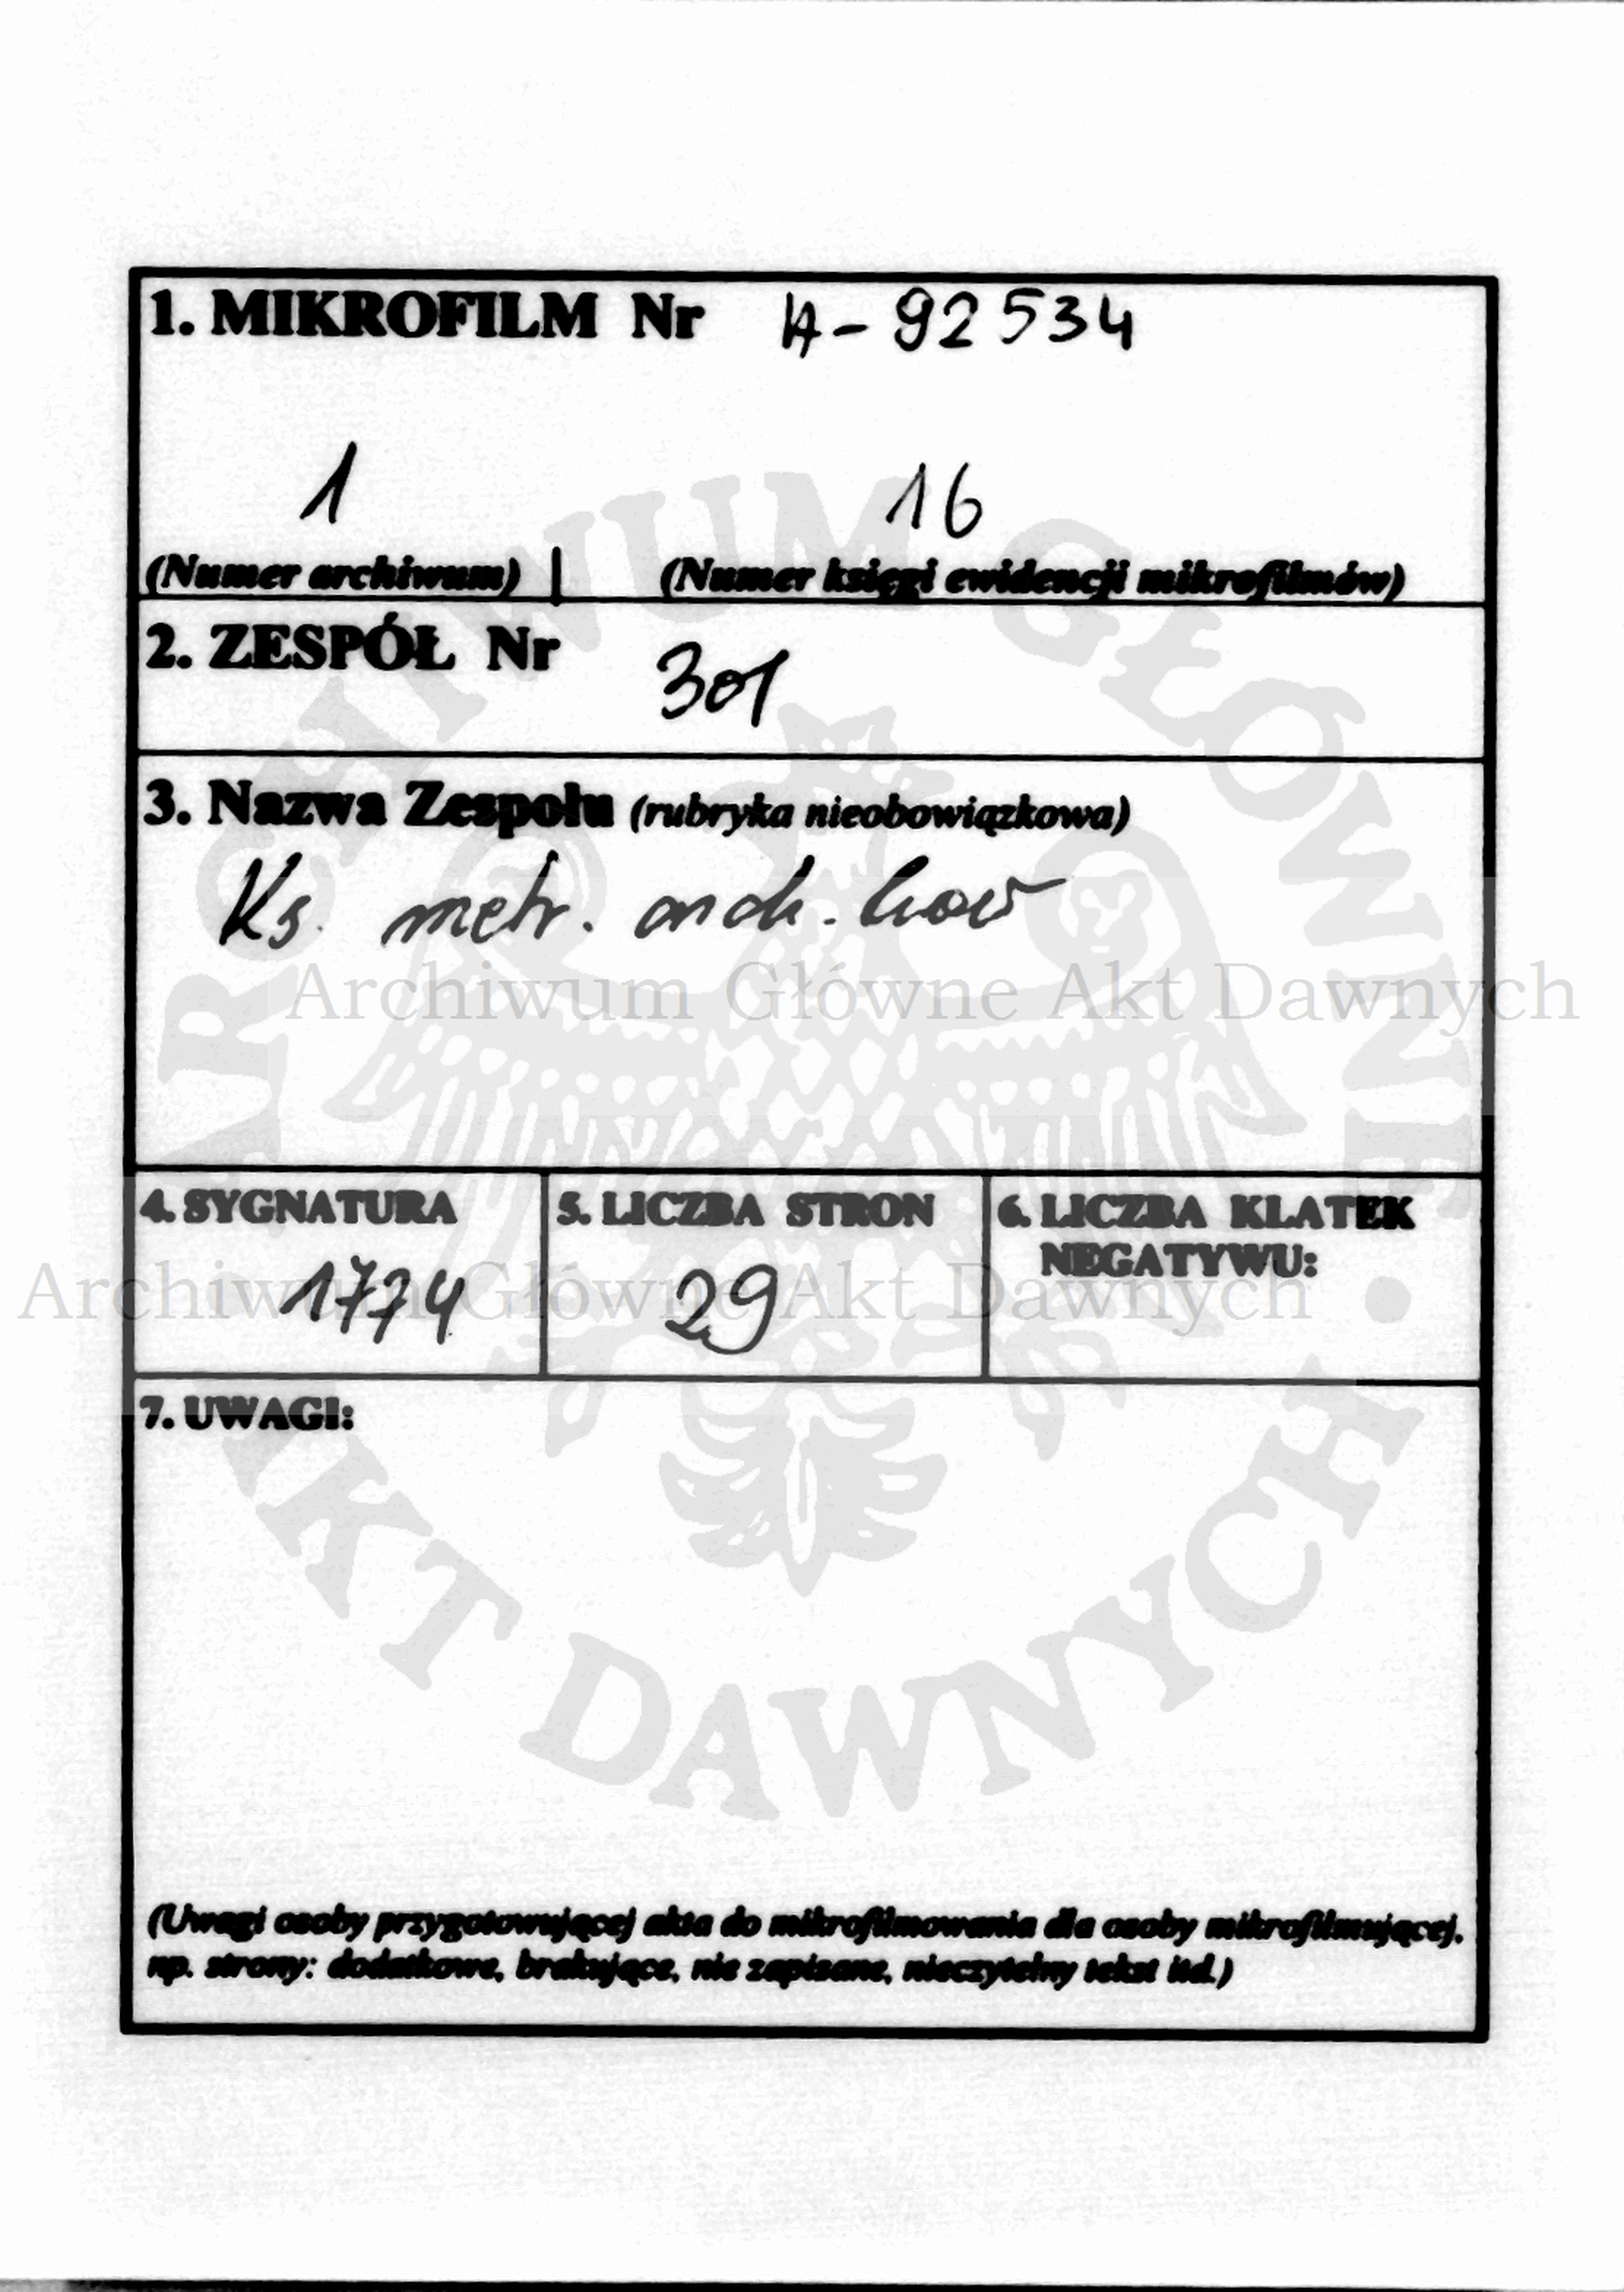 1. MIKROFILM Nr A-92534
1 16
(Numer archiwum) (Numer księgi ewidencji mikrofilmów)
2. ZESPÓŁ Nr 301
3. Nazwa Zespołu (rubryka nieobowiązkowa)
Ks. metr. arch. lwow
Archiwum Główne Akt Dawnych
4. SYGNATURA 5. LICZBA STRON 6. LICZBA KLATEK
NEGATYWU:
1774 29
Archiwum Główne Akt Dawnych
7. UWAGI:
(Uwagi osoby przygotowującej akta do mikrofilmowania dla osoby mikrofilmującej,
np. strony: dodatkowe, brakujące, nie zapisane, nieczytelny tekst itd.)
ARCHIWUM GŁÓWNE • AKT DAWNYCH